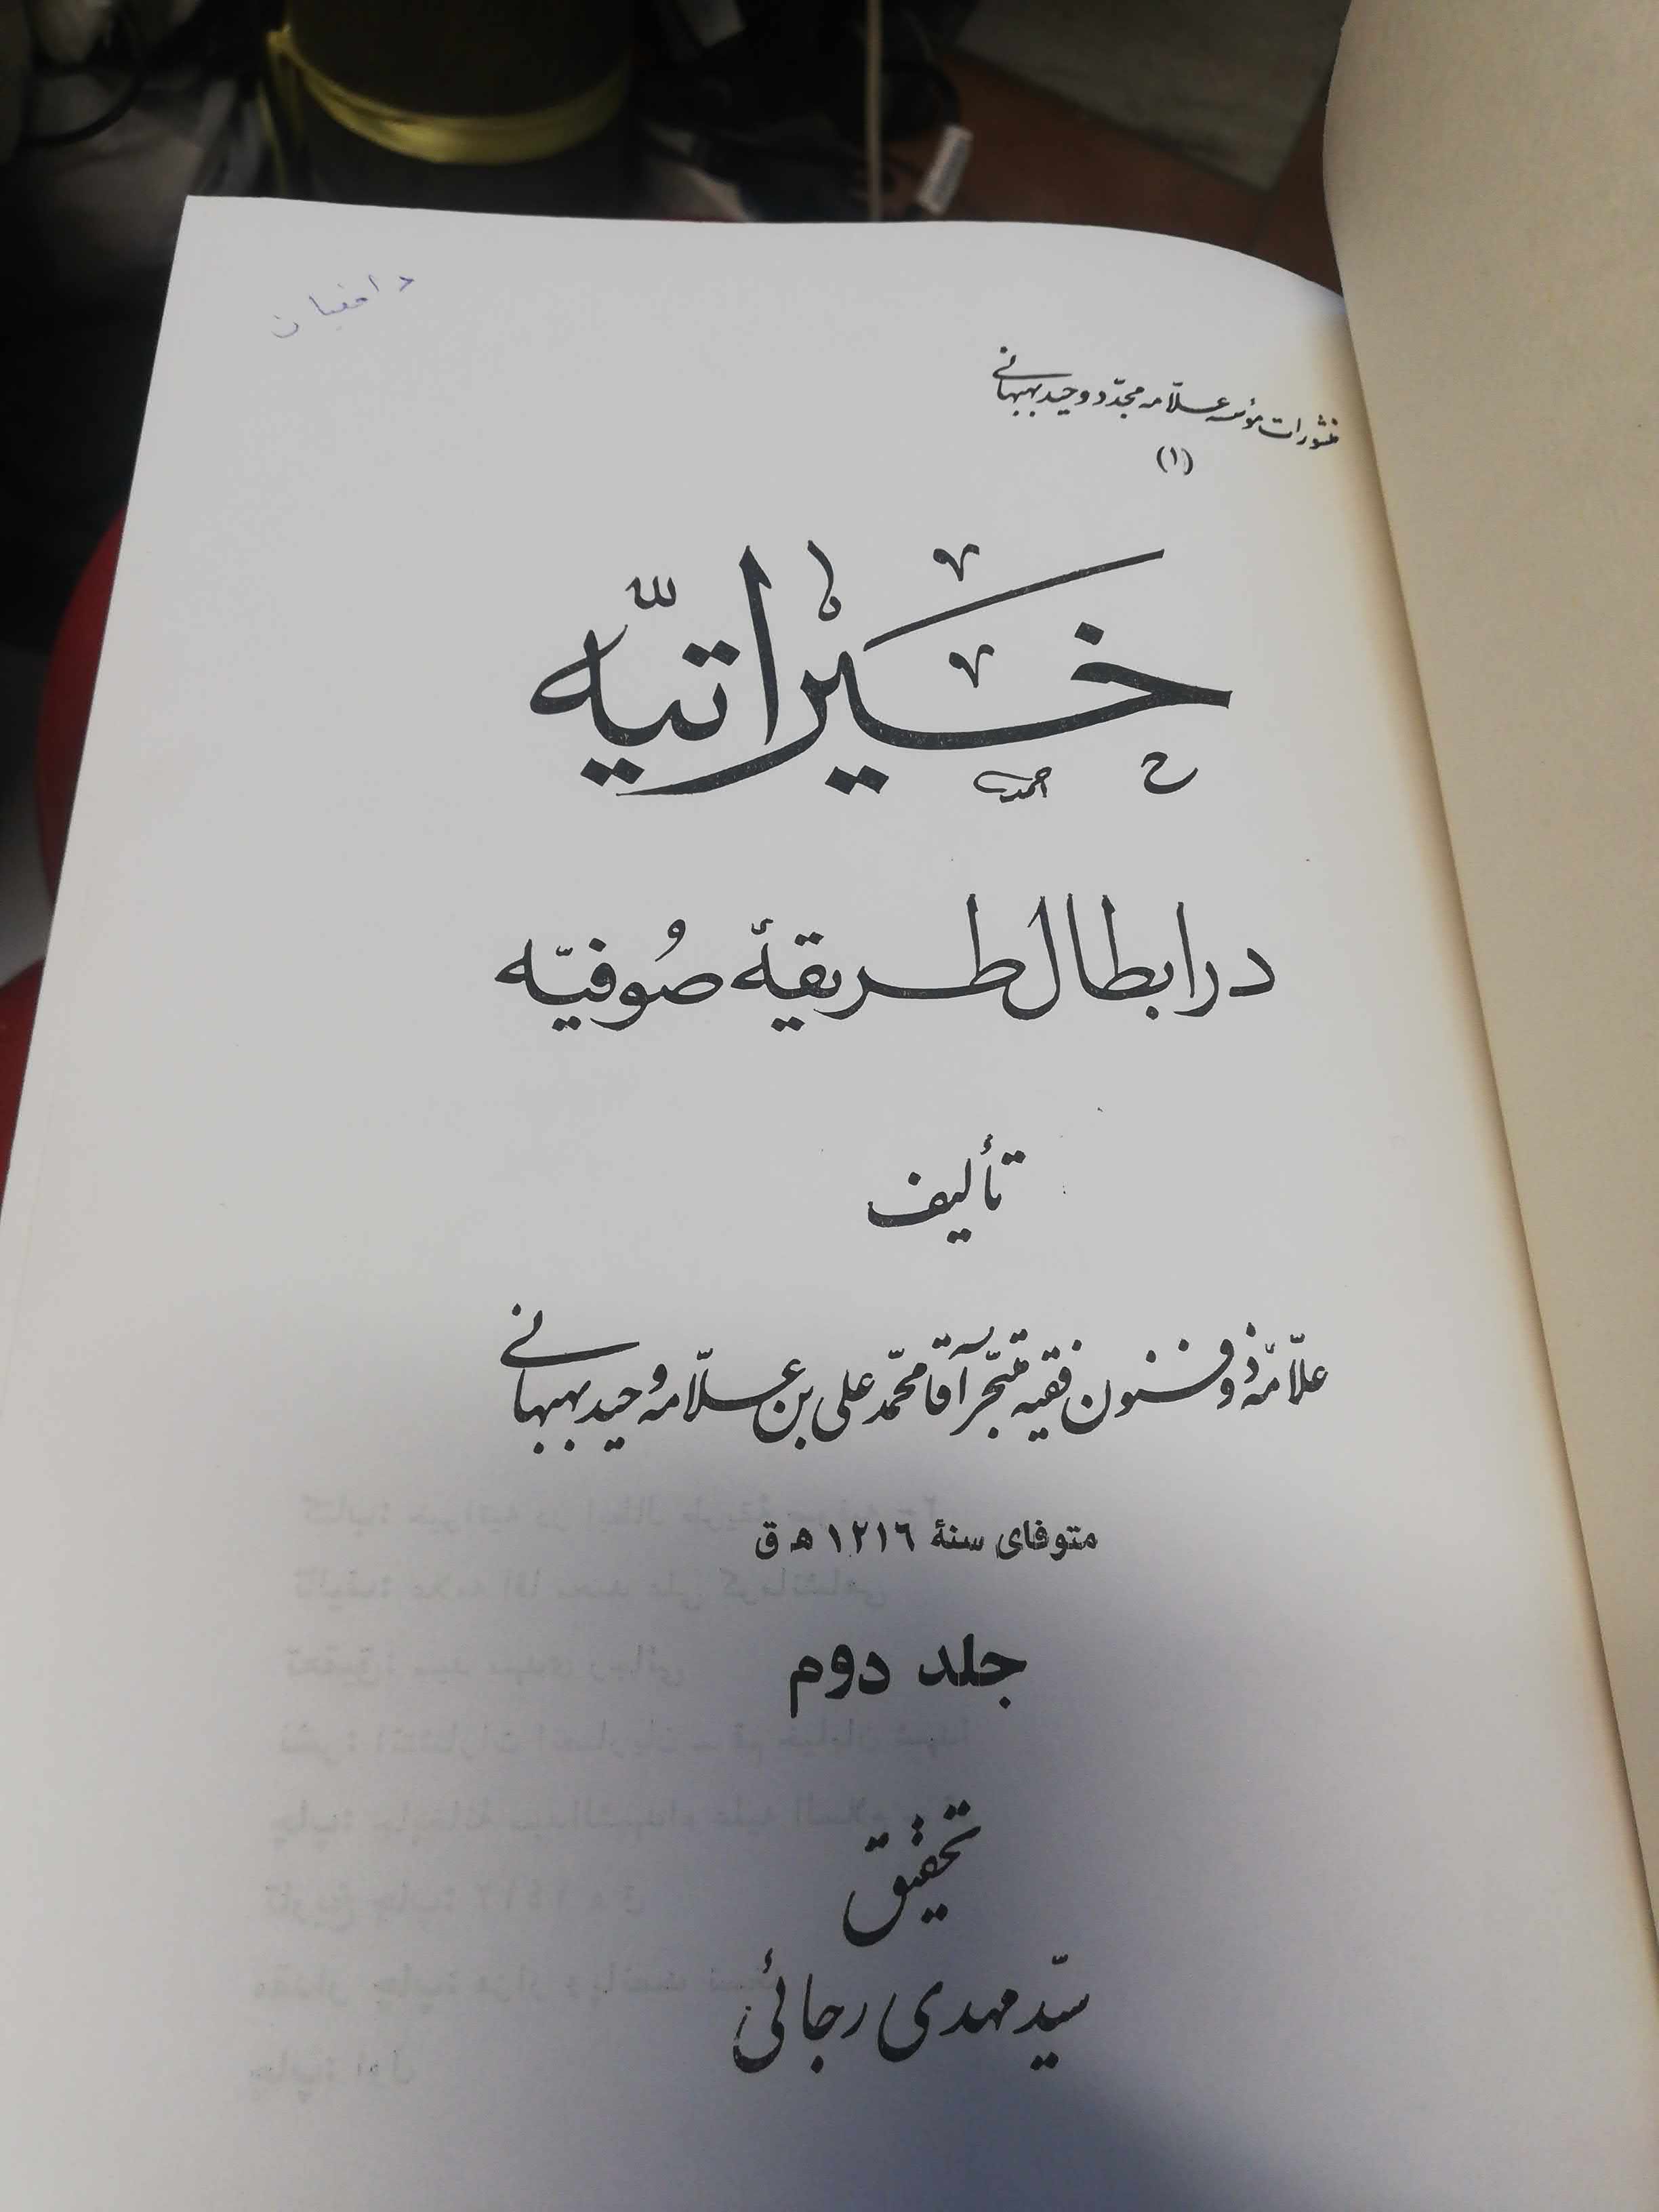 دامغیان
منشورات مؤسسه علّامه مجدّد وحید بهبهانی
(١)
خیراتیّه
احمد
در ابطال طریقهٔ صُوفیّه
تألیف
علّامّه ذوفنون فقیه متبحّر آقا محمّد علی بن علّامه وحید بهبهانی
متوفای سنهٔ ١٢١٦ ه‍ ق
جلد دوم
تحقیق
سیّد مهدی رجائی